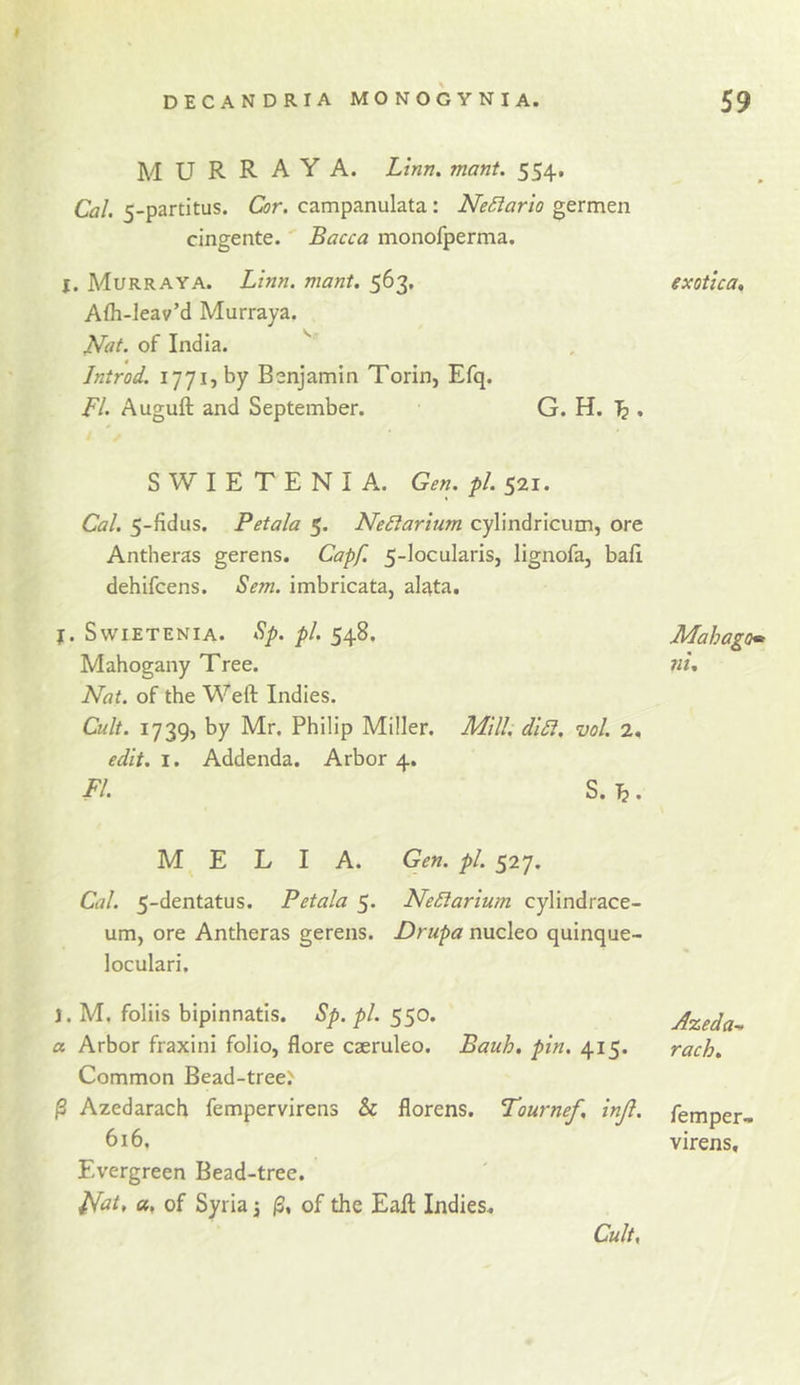 DECANDRIA MONOGYNIA. 59
MURRAYA. Linn. mant. 554.
Cal. 5-partitus. Cor. campanulata: Nectario germen
cingente. Bacca monoſperma.
1. MURRAYA. Linn. mant. 563. exotica.
Aſh-leav'd Murraya.
Nat. of India.
Introd. 1771, by Benjamin Torin, Eſq.
Fl. Auguſt and September. G. H. ♄.
SWIETENIA. Gen. pl. 521.
Cal. 5-fidus. Petala 5. Nectarium cylindricum, ore
Antheras gerens. Capſ. 5-locularis, lignoſa, baſi
dehiſcens. Sem. imbricata, alata.
1. SWIETENIA. Sp. pl. 548. Mahago-
Mahogany Tree. ni.
Nat. of the Weſt Indies.
Cult. 1739, by Mr. Philip Miller. Mill. dict. vol. 2.
edit. 1. Addenda. Arbor 4.
Fl. S. ♄.
MELIA. Gen. pl. 527.
Cal. 5-dentatus. Petala 5. Nectarium cylindrace-
um, ore Antheras gerens. Drupa nucleo quinque-
loculari.
1. M. foliis bipinnatis. Sp. pl. 550. Azeda-
α Arbor fraxini folio, flore cæruleo. Bauh. pin. 415. rach.
Common Bead-tree.
β Azedarach ſempervirens & florens. Tournef. inſt. ſemper-
616. virens.
Evergreen Bead-tree.
Nat. α. of Syria; β. of the Eaſt Indies.
Cult.